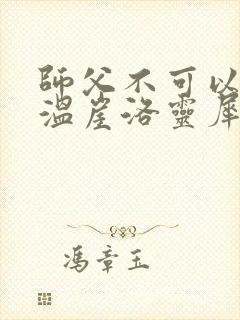 師父不可以
溫崖洛靈犀
馮章玉